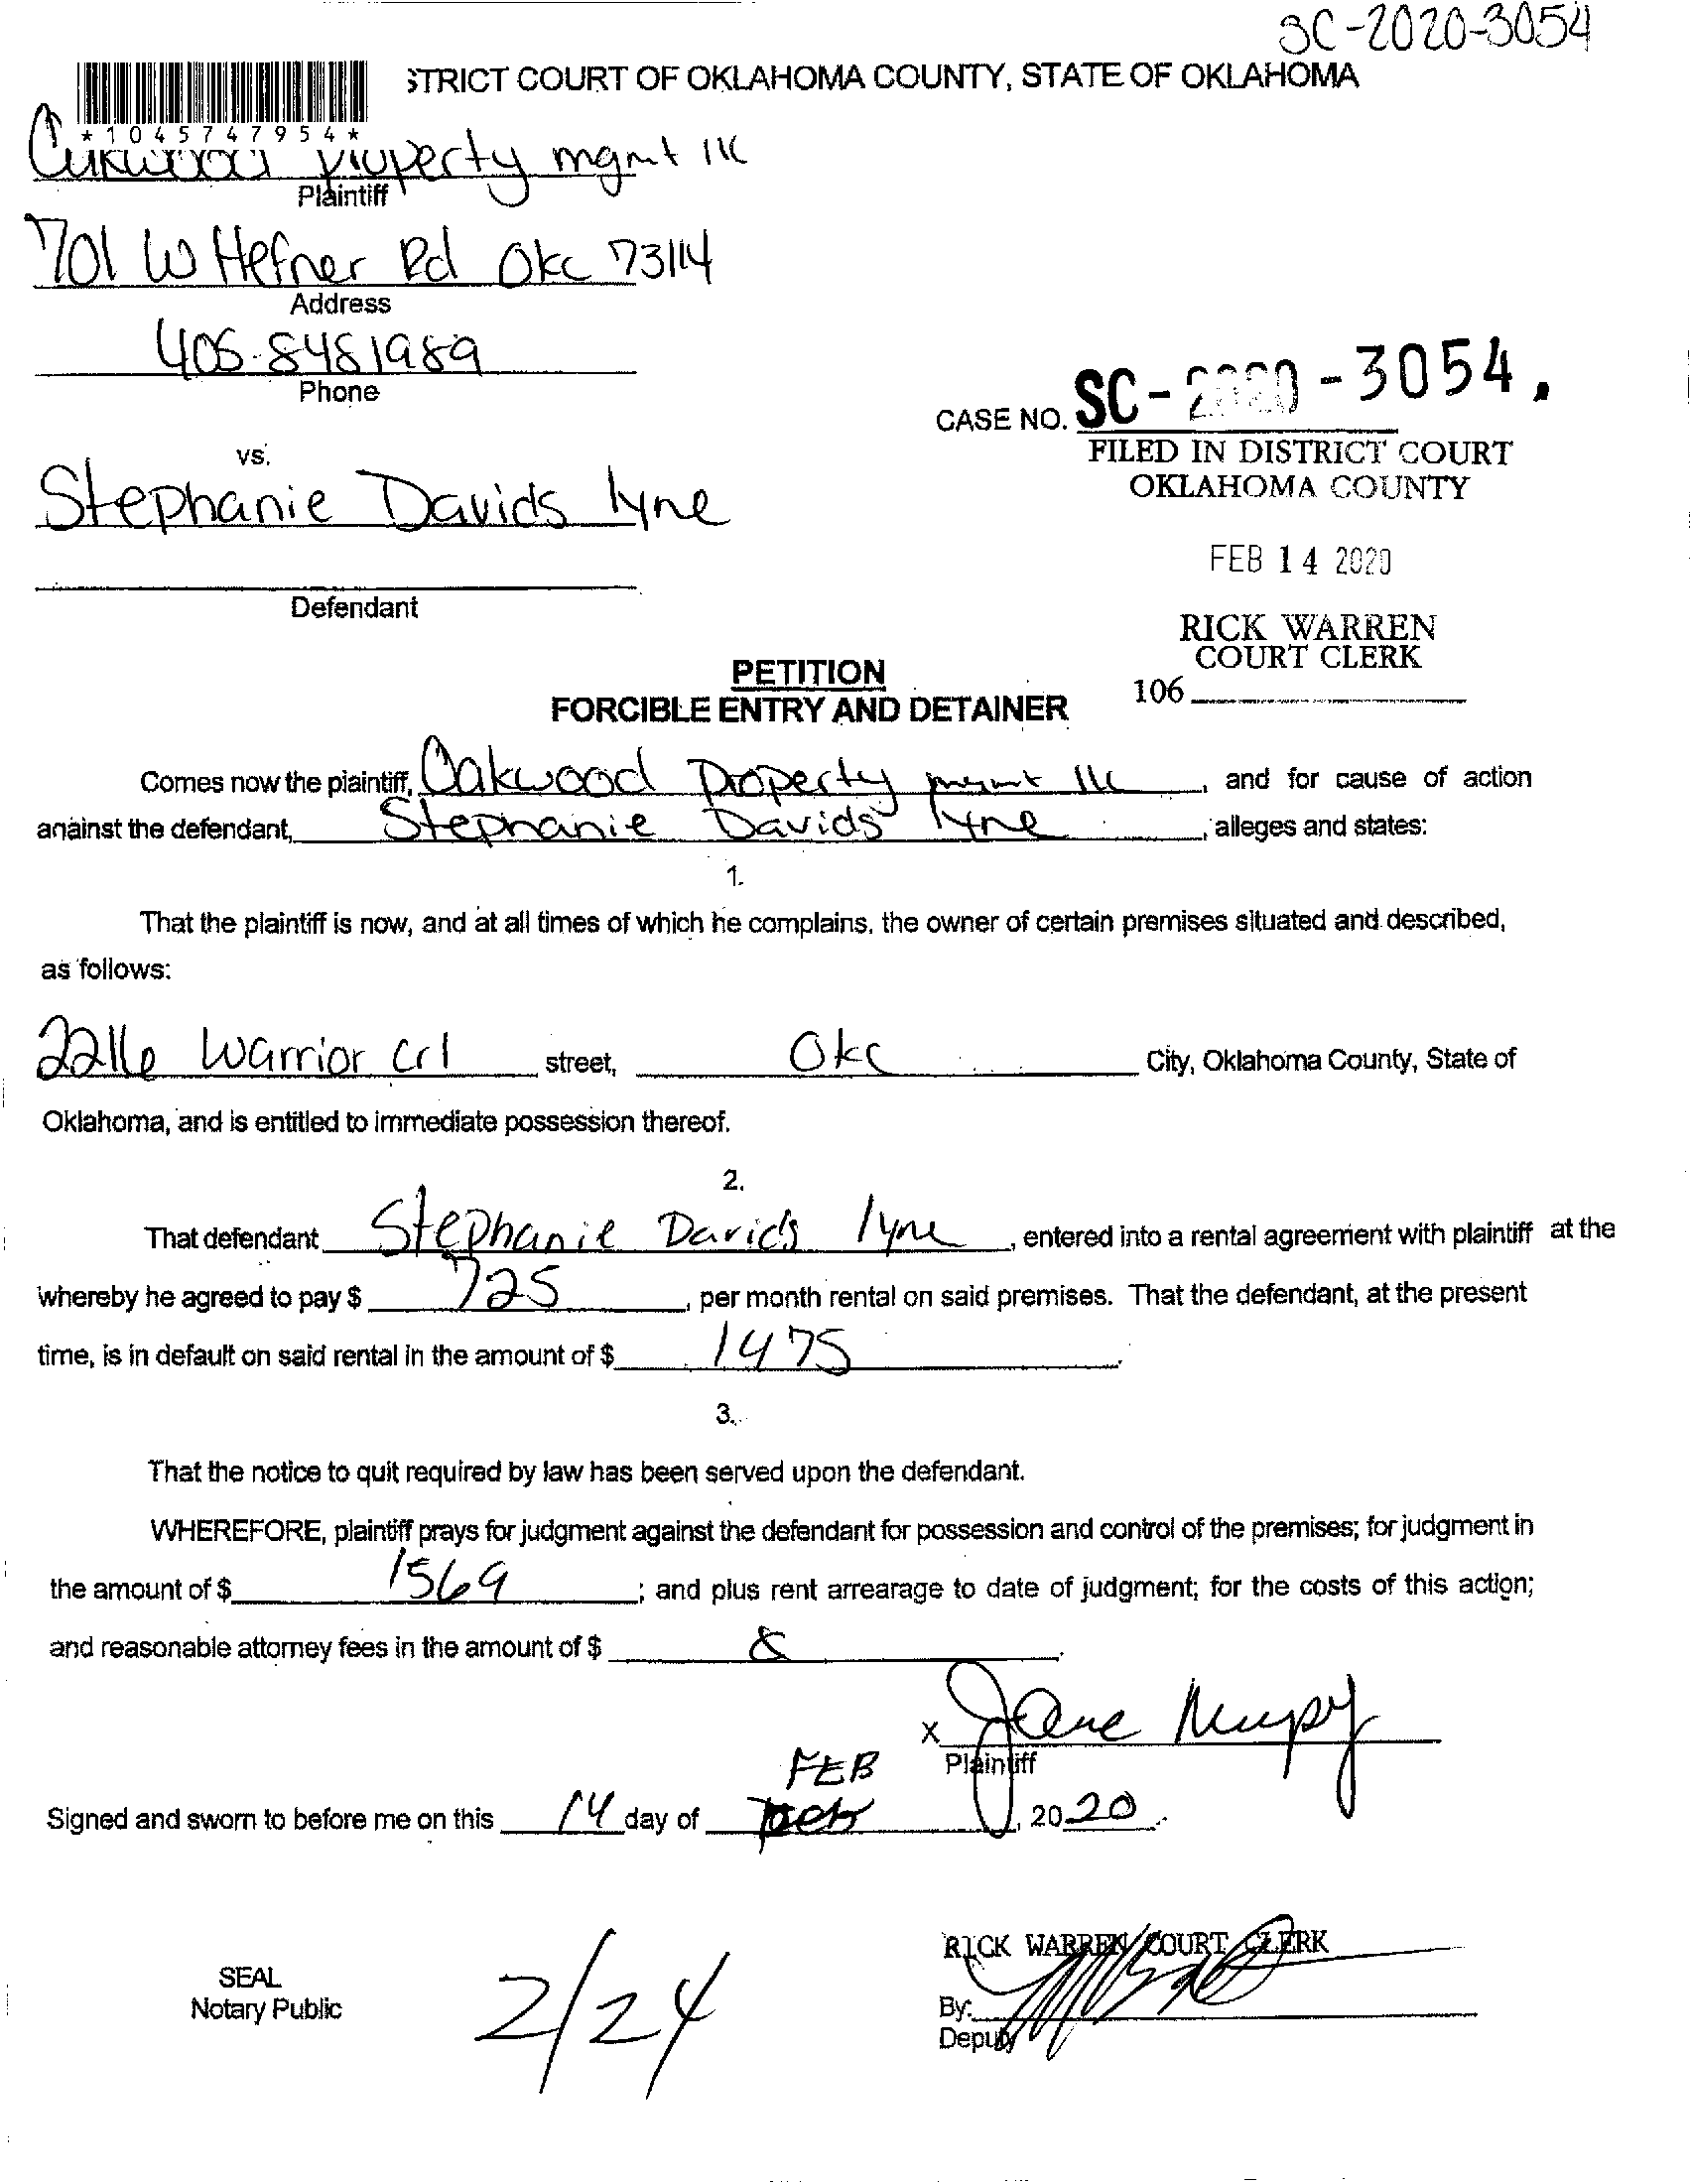 SC-2020-3054
STRICT COURT OF OKLAHOMA COUNTY, STATE OF OKLAHOMA
*1045747954*
Oakwood Property mgmt llc
Plaintiff
701 W Hefner Rd Okc 73114
Address
405-8481989
Phone
CASE NO. SC-2020-3054.
FILED IN DISTRICT COURT
OKLAHOMA COUNTY
vs.
Stephanie Davids lyne
FEB 14 2020
Defendant
RICK WARREN
COURT CLERK
106
PETITION
FORCIBLE ENTRY AND DETAINER
Comes now the plaintiff, Oakwood Property mgmt llc, and for cause of action
against the defendant, Stephanie Davids lyne, alleges and states:
1.
That the plaintiff is now, and at all times of which he complains, the owner of certain premises situated and described,
as follows:
2216 Warrior crl street, Okc City, Oklahoma County, State of
Oklahoma, and is entitled to immediate possession thereof.
2.
That defendant Stephanie Davids lyne, entered into a rental agreement with plaintiff at the
whereby he agreed to pay $ 725, per month rental on said premises. That the defendant, at the present
time, is in default on said rental in the amount of $ 1475.
3.
That the notice to quit required by law has been served upon the defendant.
WHEREFORE, plaintiff prays for judgment against the defendant for possession and control of the premises; for judgment in
the amount of $ 1569; and plus rent arrearage to date of judgment; for the costs of this action;
and reasonable attorney fees in the amount of $
x Jane
Plaintiff
FEB
Signed and sworn to before me on this 14 day of , 2020.
RICK WARREN COURT CLERK
SEAL
Notary Public
2/24
By:
Deputy